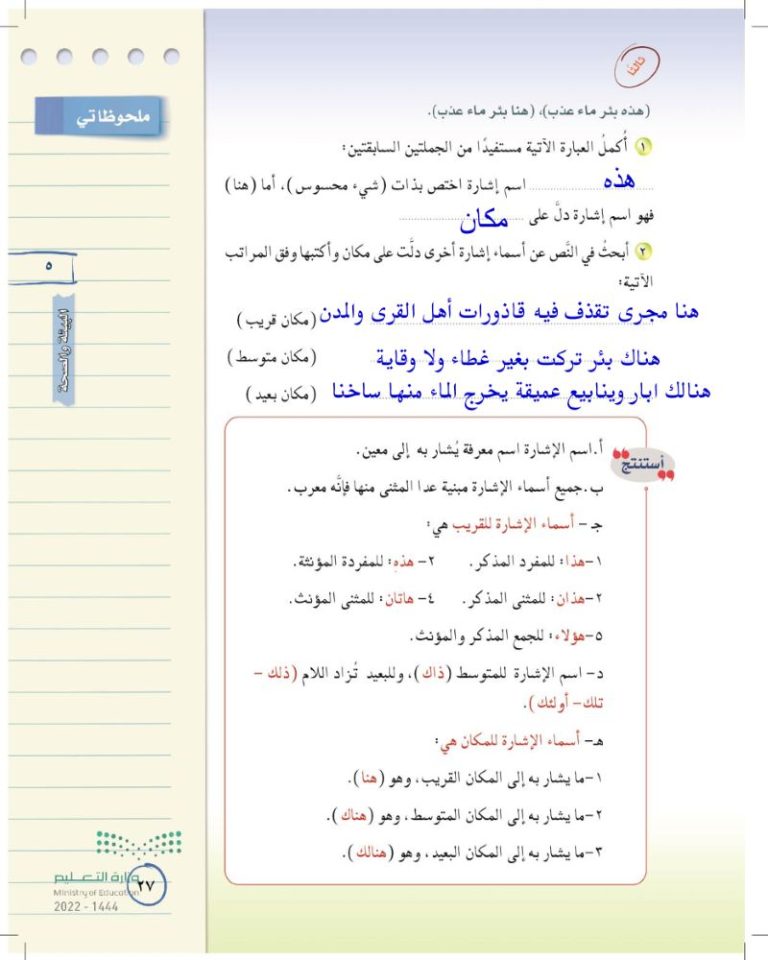 ثالثًا
(هذه بئر ماء عذب)، (هنا بئر ماء عذب).
١ أُكملُ العبارة الآتية مستفيدًا من الجملتين السابقتين:
هذه اسم إشارة اختص بذات (شيء محسوس)، أما (هنا)
فهو اسم إشارة دلَّ على مكان
٢ أبحثُ في النَّص عن أسماء إشارة أخرى دلَّت على مكان وأكتبها وفق المراتب
الآتية:
هنا مجرى تقذف فيه قاذورات أهل القرى والمدن (مكان قريب)
هناك بئر تركت بغير غطاء ولا وقاية (مكان متوسط)
هنالك ابار وينابيع عميقة يخرج الماء منها ساخنا (مكان بعيد)
أستنتج
أ.اسم الإشارة اسم معرفة يُشار به إلى معين.
ب.جميع أسماء الإشارة مبنية عدا المثنى منها فإنَّه معرب.
جـ - أسماء الإشارة للقريب هي:
١-هذا: للمفرد المذكر. ٢- هذهِ: للمفردة المؤنثة.
٢-هذان: للمثنى المذكر. ٤- هاتان: للمثنى المؤنث.
٥-هؤلاء: للجمع المذكر والمؤنث.
د- اسم الإشارة للمتوسط (ذاك)، وللبعيد تُزاد اللام (ذلك -
تلك- أولئك).
هـ- أسماء الإشارة للمكان هي:
١-ما يشار به إلى المكان القريب، وهو (هنا).
٢-ما يشار به إلى المكان المتوسط، وهو (هناك).
٣-ما يشار به إلى المكان البعيد، وهو (هنالك).
ملحوظاتي
٥
البيئة والصحة
وزارة التعليم
Ministry of Education
2022 - 1444
٢٧